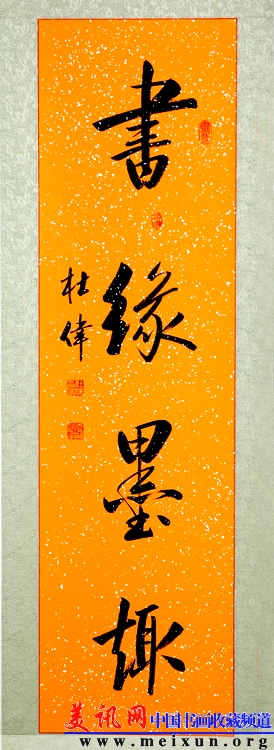 書緣墨趣
杜偉
美讯网
中国书画收藏频道
www.meixun.org